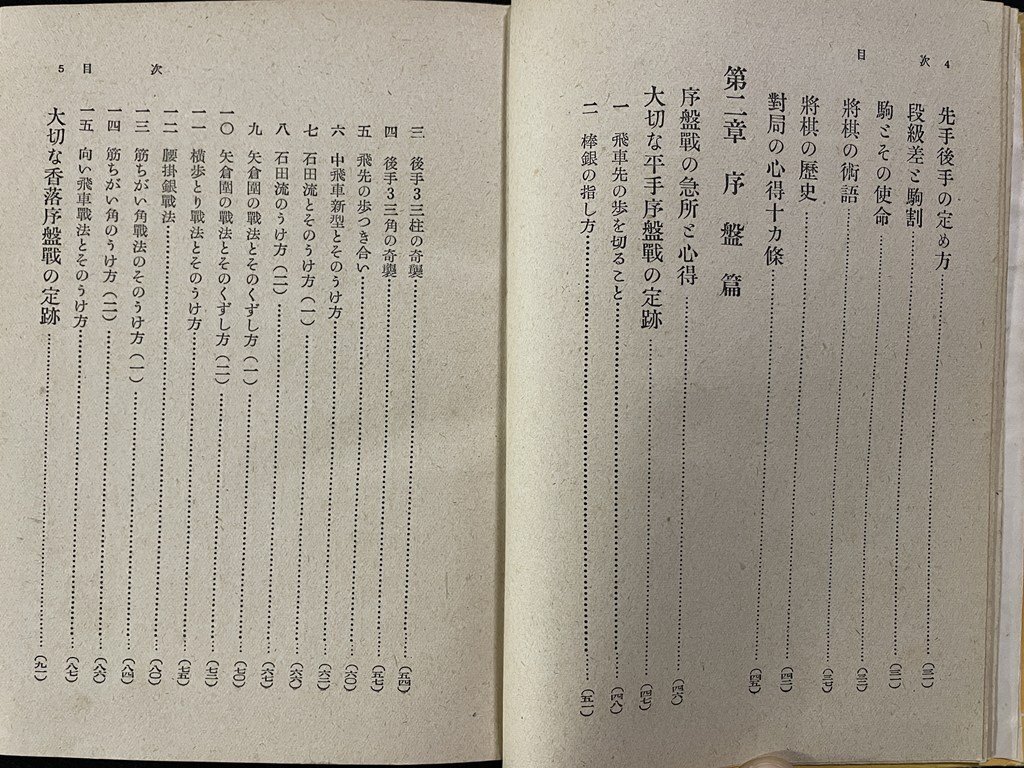 目次 4
先手後手の定め方
段級差と駒割
駒とその使命
將棋の術語……(三七)
將棋の歷史……(四二)
對局の心得十カ條……(四五)
第二章 序盤篇
序盤戰の急所と心得……(四六)
大切な平手序盤戰の定跡……(四七)
一 飛車先の歩を切ること……(四八)
二 棒銀の指し方……(五一)
目次 5
三 後手3三桂の奇襲……(五四)
四 後手3三角の奇襲……(五七)
五 飛先の歩つき合い……(六〇)
六 中飛車新型とそのうけ方……
七 石田流とそのうけ方(一)……
八 石田流のうけ方(二)……(六七)
九 矢倉圍の戰法とそのくずし方(一)……(七〇)
一〇 矢倉圍の戰法とそのくずし方(二)……
一一 横歩とり戰法とそのうけ方……(七五)
一二 腰掛銀戰法……(八〇)
一三 筋ちがい角戰法のそのうけ方(一)……(八四)
一四 筋ちがい角のうけ方(二)……(八六)
一五 向い飛車戰法とそのうけ方……(八七)
大切な香落序盤戰の定跡……(九一)